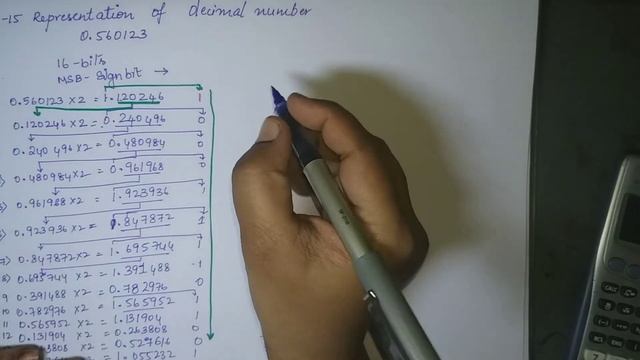 -15 Representation of decimal number
0.560123
16-bits
MSB- Sign bit →
0.560123 x 2 = 1.120246 1
0.120246 x 2 = 0.240496 0
0.240496 x 2 = 0.480984 0
0.480984 x 2 = 0.961968 0
0.961988 x 2 = 1.923936 1
0.923936 x 2 = 1.847872 1
7) 0.847872 x 2 = 1.695744 1
8) 0.695744 x 2 = 1.391488 1
9 0.391488 x 2 = 0.782976 0
10 0.782976 x 2 = 1.565952 1
11 0.565952 x 2 = 1.131904 1
12 0.131904 x 2 = 0.263808 0
3808 x 2 = 0.527616 0
x 2 = 1.055232 1